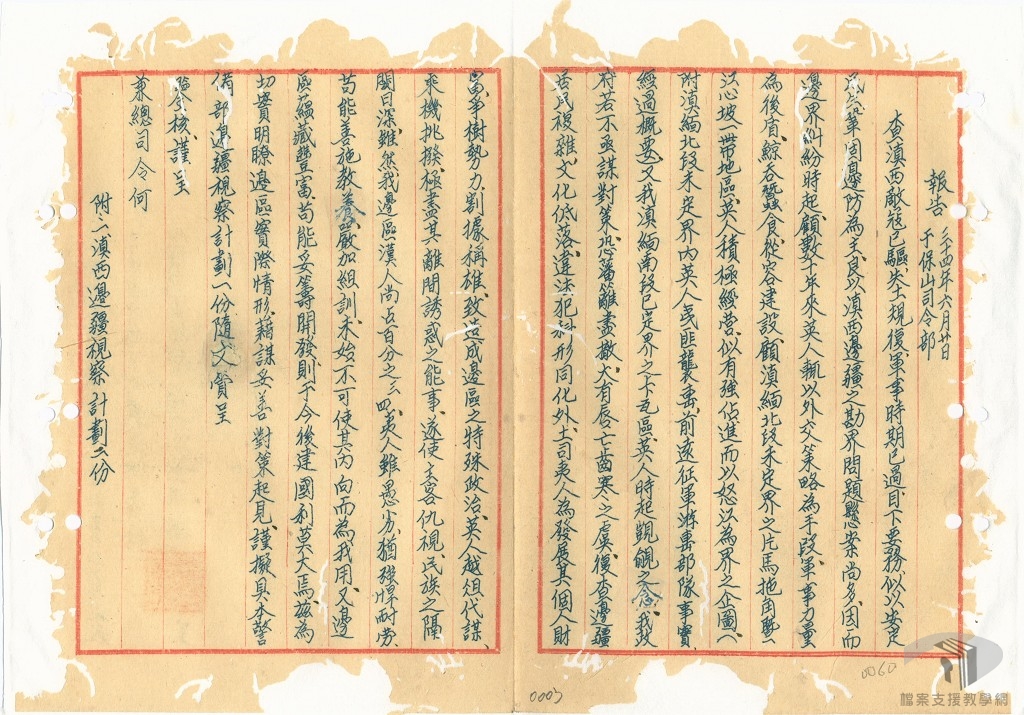 報告 三十四年六月廿日
于保山司令部
查滇西敵寇已驅失土規復軍事時期已過目下要務似以安定
民鞏固邊防為主良以滇西邊疆之勘界問題懸案尚多因而
邊界糾紛時起顧數十年來英人輒以外交策略為手段軍事力量
為後盾鯨吞蠶食從容建設顧滇緬北段未定界之片馬拖角暨
江心坡一帶地區英人積極經營似有強佔進而以怒江為界之企圖(
附滇緬北段未定界內英人曳匪襲擊前遠征軍游擊部隊事實
經過概要)又我滇緬南段已定界之卡瓦區英人時起覬覦之念我政
府若不亟謀對策恐藩籬盡撤大有唇亡齒寒之虞復查邊疆
居民複雜文化低落違法犯科形同化外土司夷人為發展其個人財
富爭樹勢力割據稱雄致造成邊區之特殊政治英人越俎代謀、
乘機挑撥極盡其離間誘惑之能事遂使主客仇視民族之隔
閡日深雖然我邊區漢人尚占百分之三四夷人雖愚劣猶強悍耐勞
苟能善施教養嚴加組訓未始不可使其內向而為我用又邊
區蘊藏豐富苟能妥籌開發則于今後建國利莫大焉茲為
切實明瞭邊區實際情形藉謀妥善對策起見謹擬具本警
備部邊疆視察計劃一份隨文賫呈
鑒核、謹呈
兼總司令何
附一滇西邊疆視察計劃一份
0003
0060
檔案支援教學網